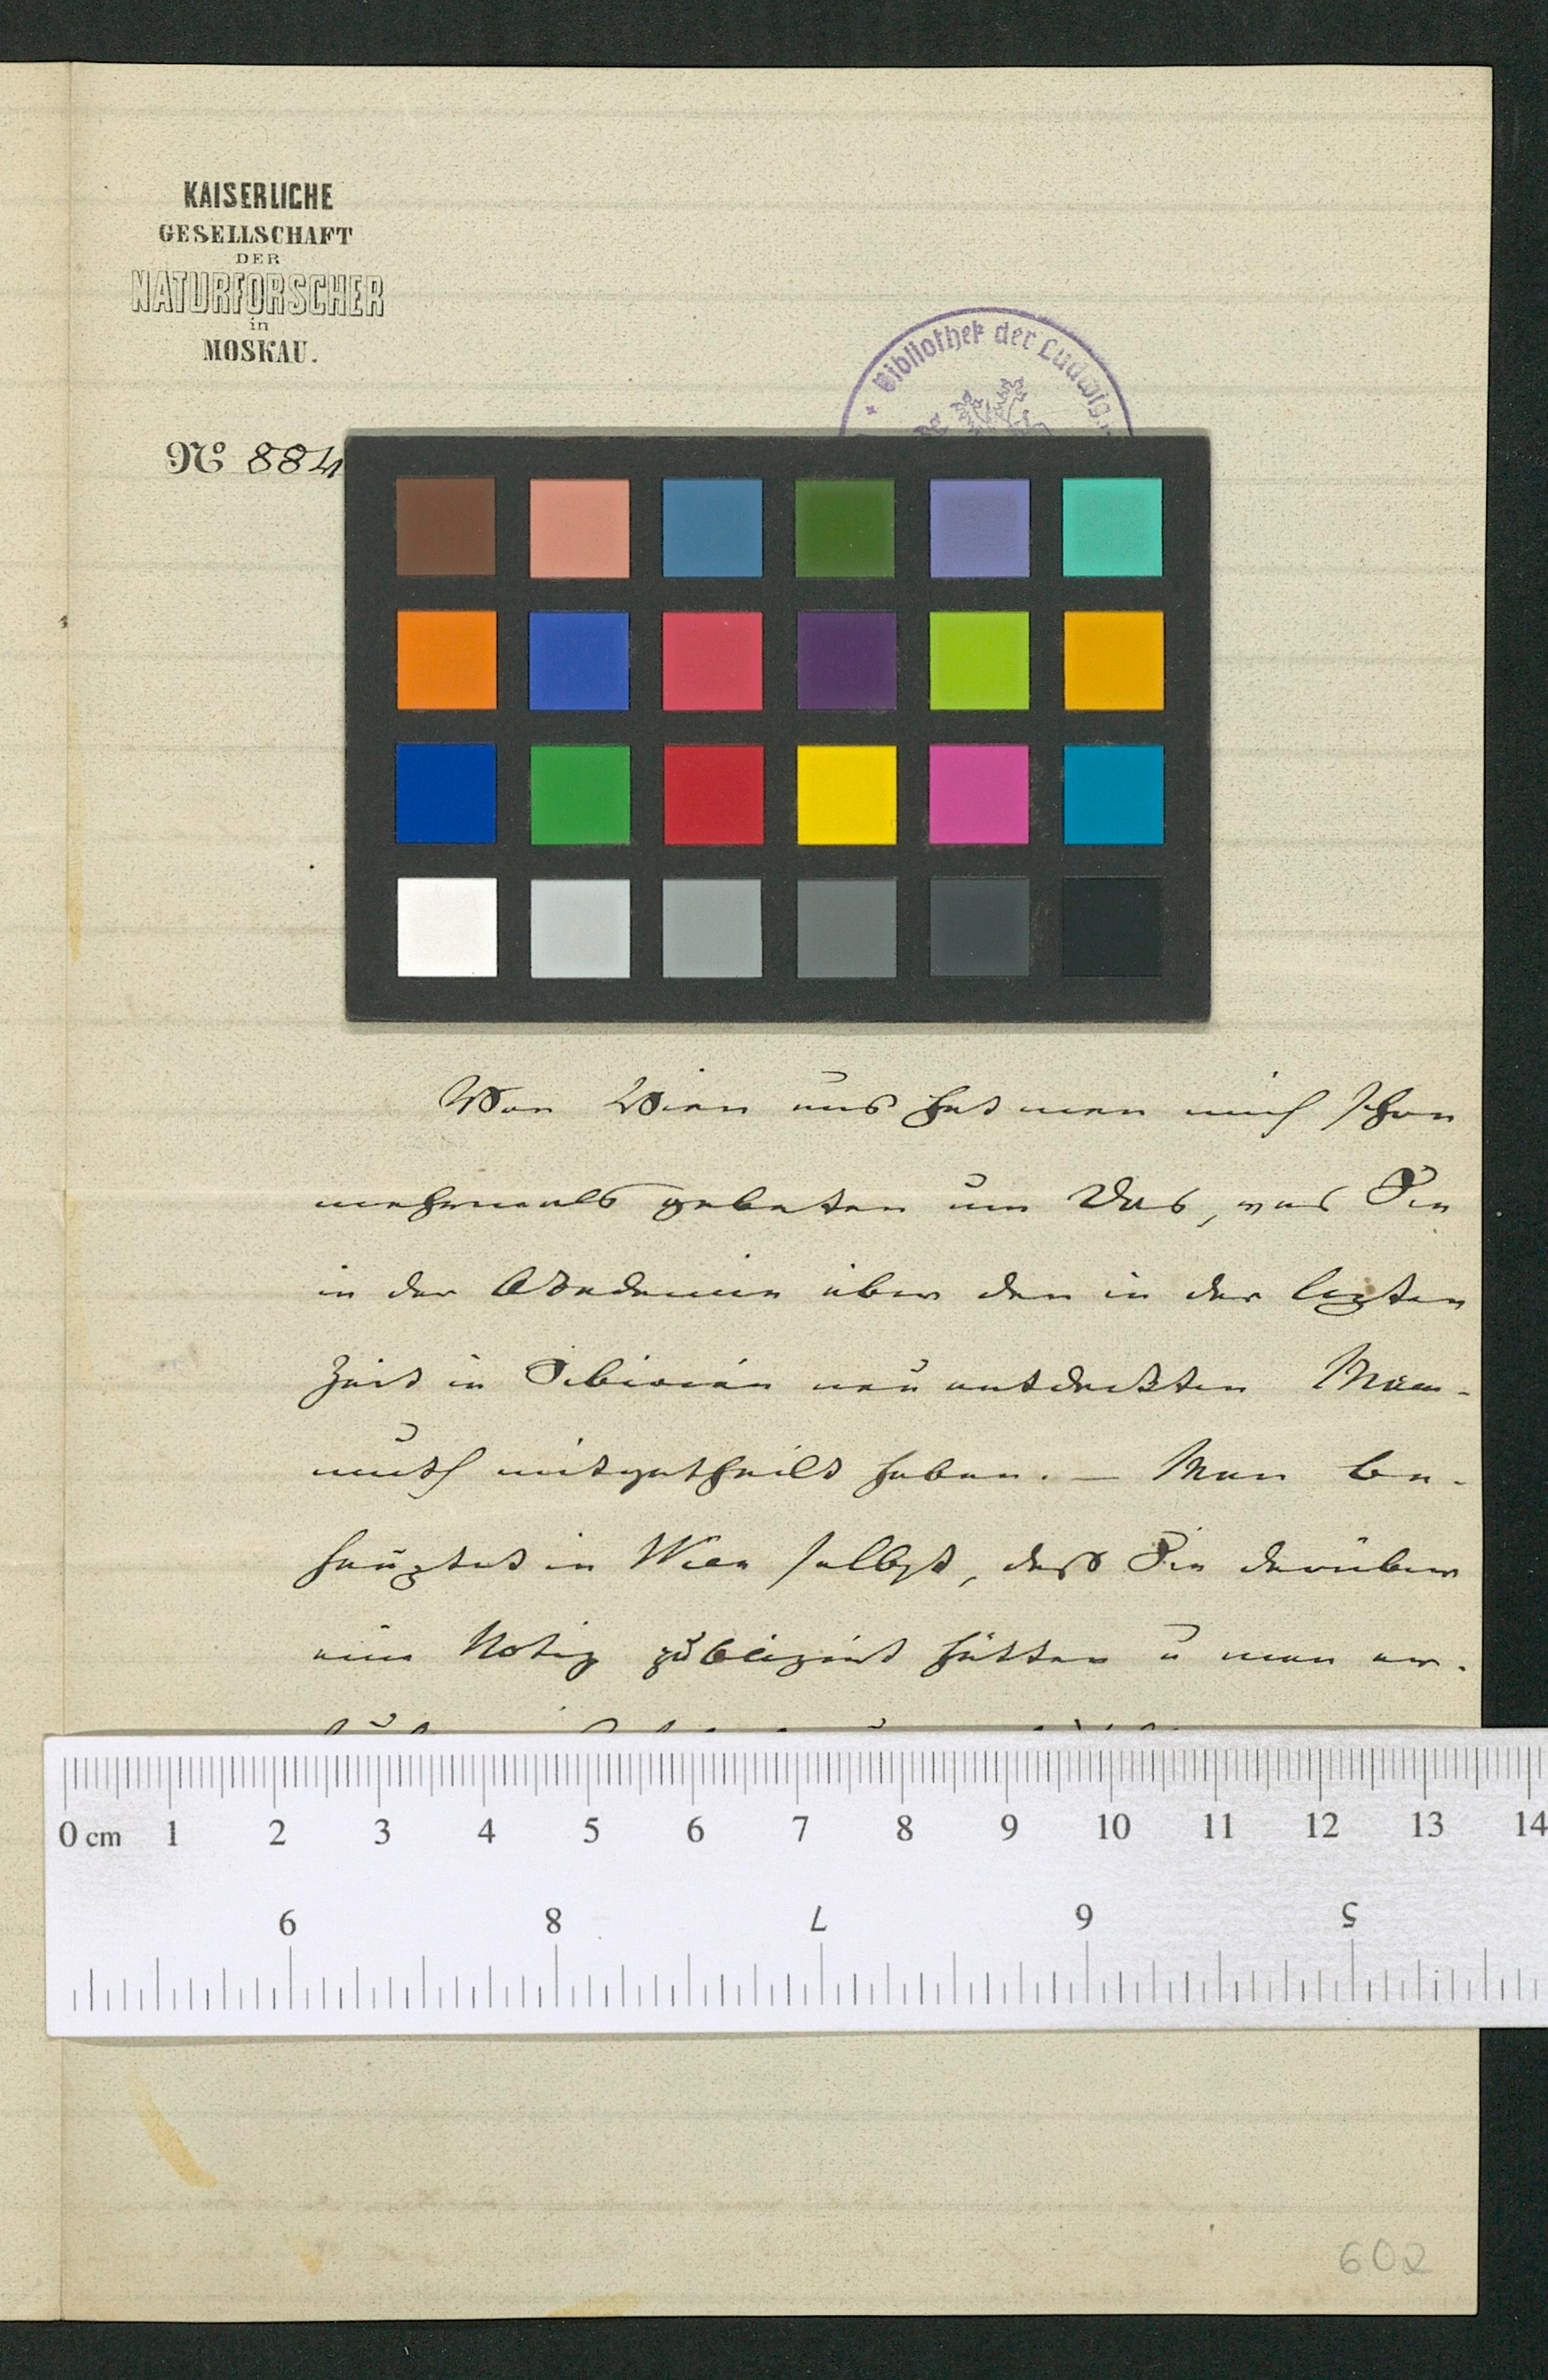 KAISERLICHE
GESELLSCHAFT
DER
NATURFORSCHER
in
MOSKAU.
Bibliothek der Ludwig
№ 884
Von Wien aus hat man mich schon
mehrmals gebeten um Das, was Sie
in der Akademie über den in der lezten
Zeit in Sibirien neu entdeckten Mam-
muth mitgetheilt haben. – Man be-
hauptet in Wien selbst, daß Sie darüber
eine Notiz publizirt hätten u man er-
0 cm 1 2 3 4 5 6 7 8 9 10 11 12 13 14
9 8 7 6 5
602